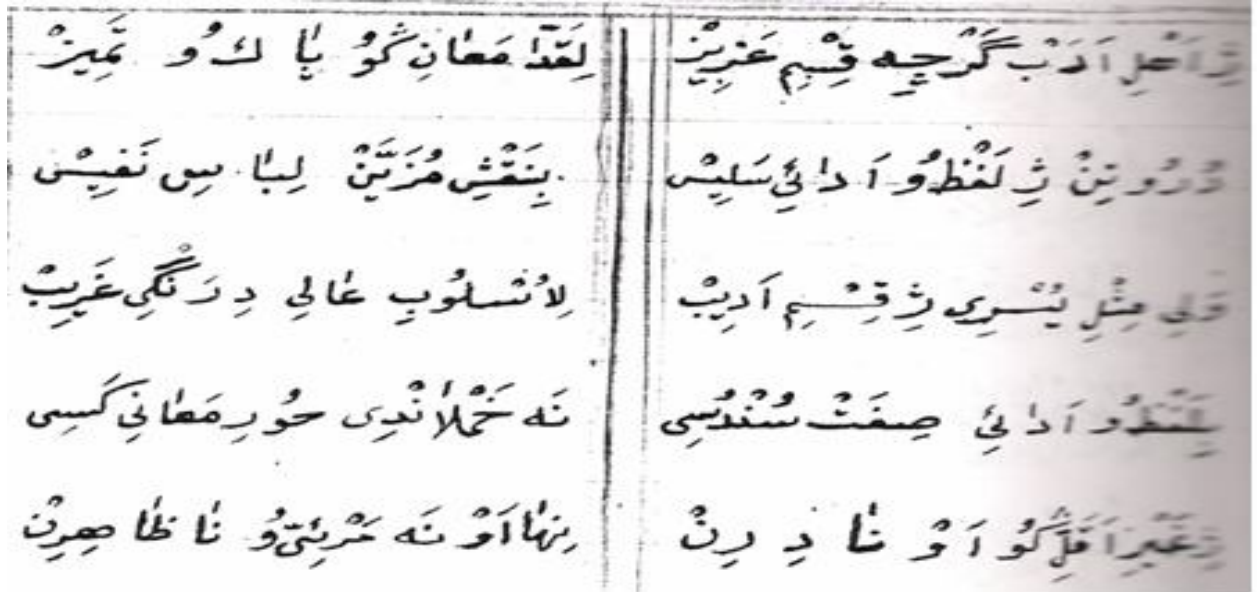 ژِ اَهْلِ اَدَبْ گَرْچِه قِسْمِ عَزِيزْ لِقَدّا مَعَانِ كُو پَاكُ و تَمِيزْ
دُرُوتِنْ ژِ لَفْظُ و اَدَائِي سَلِيسْ بِنَقْشِ مُزَيَّنْ لِبَاسِى نَفِيسْ
وَلِي مِثْلِ يُسْرِي ژِ قِسْمِ اَدِيبْ لِاُسْلُوبِ عَالِي دِ رَنْگِي غَرِيبْ
بِلَفْظُ و اَدَائِي صِفَتْ سُنْدُسِى نَه خَمْلاَنْدِى حُورِ مَعَانِي كَسِى
ژِ غَيْرِ اَقَلِّ كُو اَوْ نَادِرِنْ نِهَا اَوْ نَه مَرْئِيُّ و نَاظَاهِرِنْ